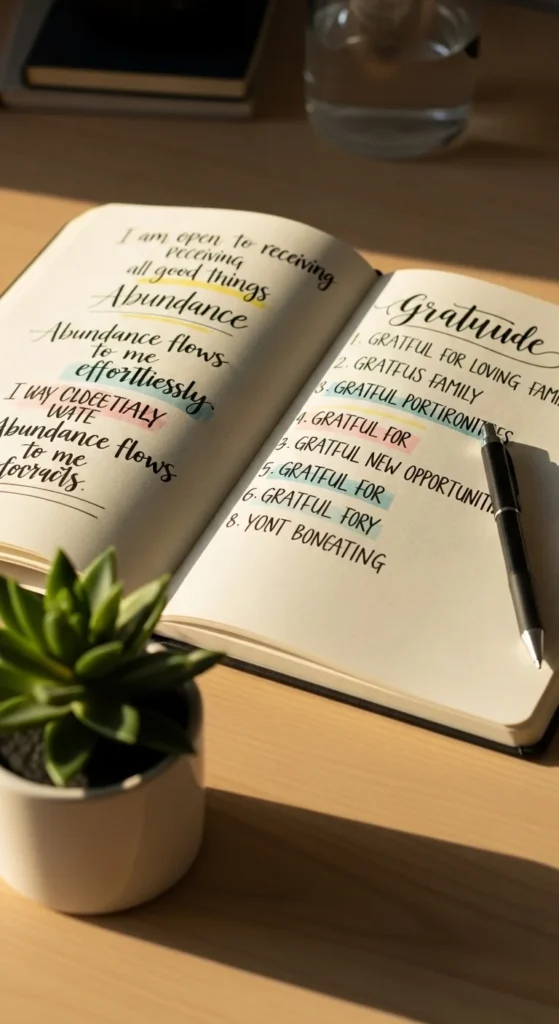 I am open to receiving
receiving
all good things
Abundance
Abundance flows
to me
effortlessly
I WAY CLOEETIALY
WATE
Abundance flows
to me
focracts.
Gratuude
1. GRATFUL FOR LOVING FAMI
2. GRATFUS FAMILY
3. GRATFUL PORTIRONITIES
4. GRATFUL FOR
3. GRATFUL NEW OPPORTUNITI
5. GRATFUL FOR
6. GRATFUL FORY
8. YONT BONEATING